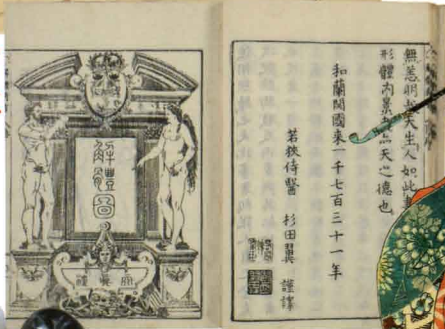 無恙明天生人如此
形體內景天之德也
和蘭開國來一千七百三十一年
若狹侍醫 杉田翼 謹譯
解體圖